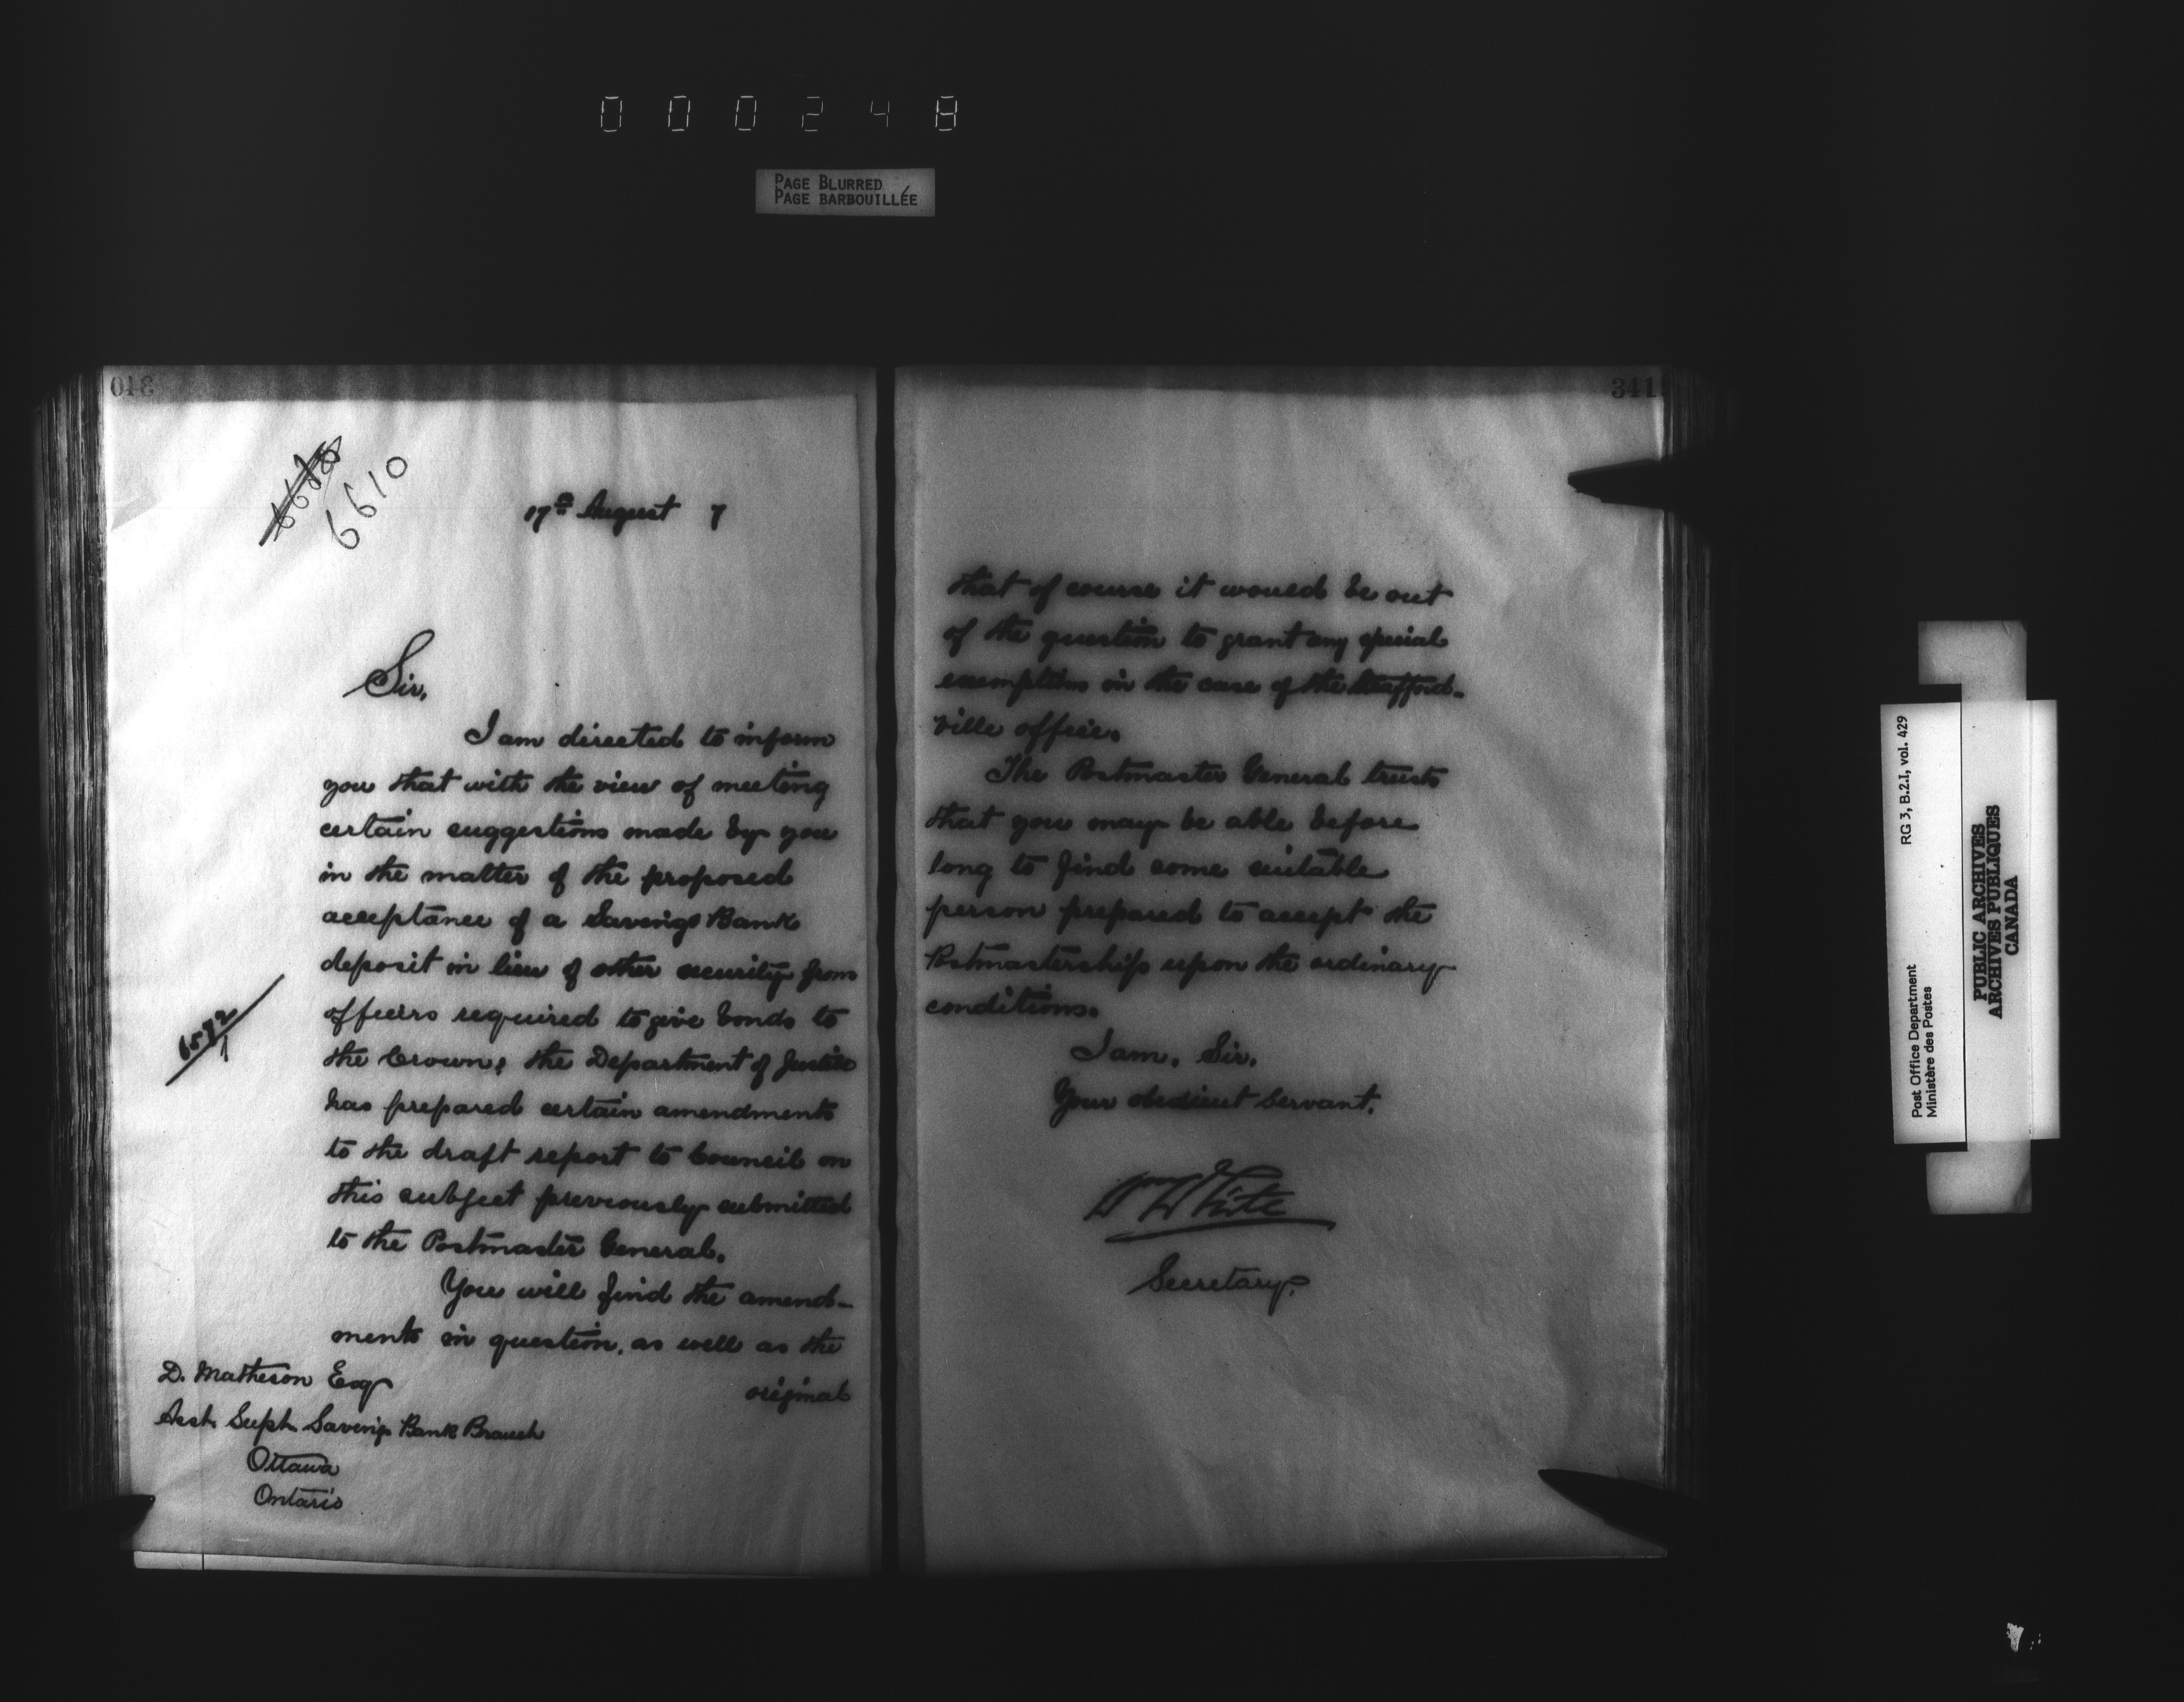 000248
PAGE BLURRED
PAGE BARBOUILLÉE
340
6610
17th August 7
Sir,
I am directed to inform
you that with the view of meeting
certain suggestions made by you
in the matter of the proposed
acceptance of a Savings Bank
deposit in lieu of other security from
officers required to give bonds to
the Crown, the Department of Justice
has prepared certain amendments
to the draft report to Council on
this subject previously submitted
to the Postmaster General.
You will find the amend-
ments in question, as well as the
original
6592
1
D. Matheson Esq
Asst. Supt. Savings Bank Branch
Ottawa
Ontario
341
that of course it would be out
of the question to grant any special
exemption in the case of the Strafford-
ville office.
The Postmaster General trusts
that you may be able before
long to find some suitable
person prepared to accept the
Postmastership upon the ordinary
conditions.
I am, Sir,
Your obedient Servant,
Wm White
Secretary.
RG 3, B.2.I, vol. 429
Post Office Department
Ministère des Postes
PUBLIC ARCHIVES
ARCHIVES PUBLIQUES
CANADA